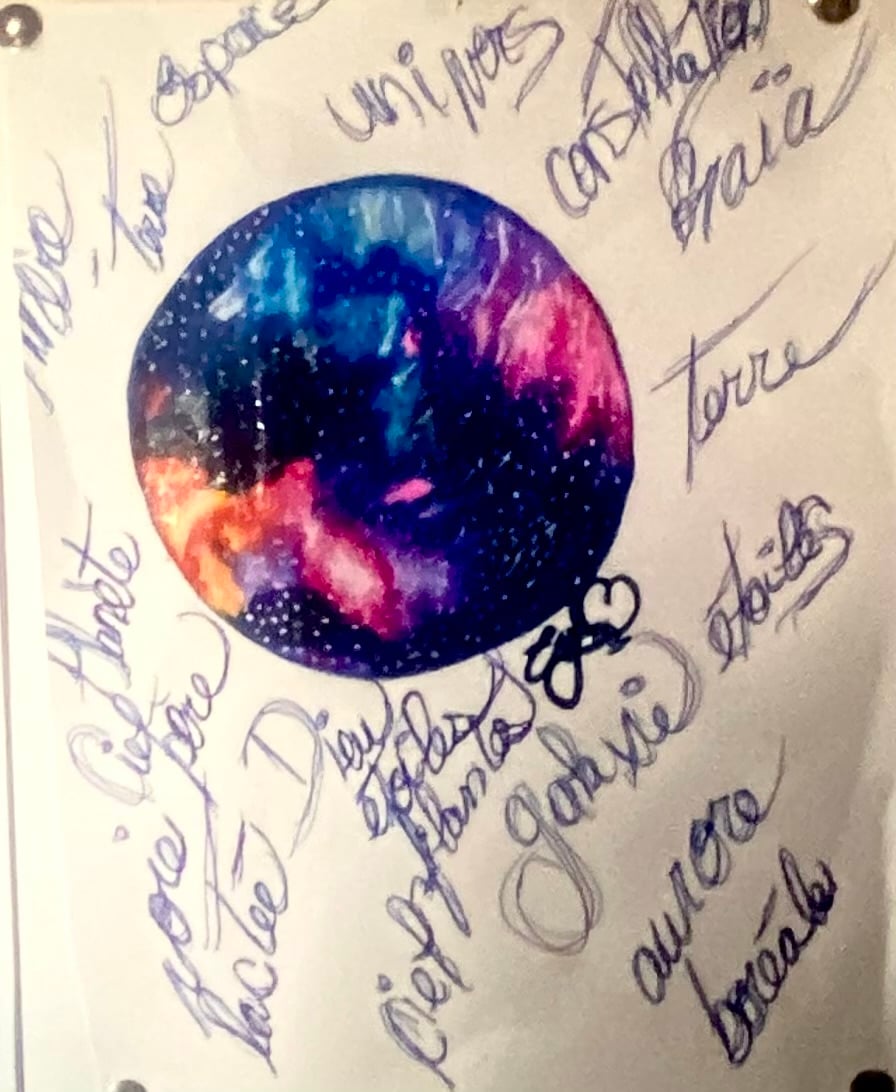 espace
univers
constellation
Gaïa
Mère
- terre
Terre
étoiles
Planète
Ciel père
Dieu
étoiles
plantes
galaxie
voie
lactée
Ciel
aurore
boréale